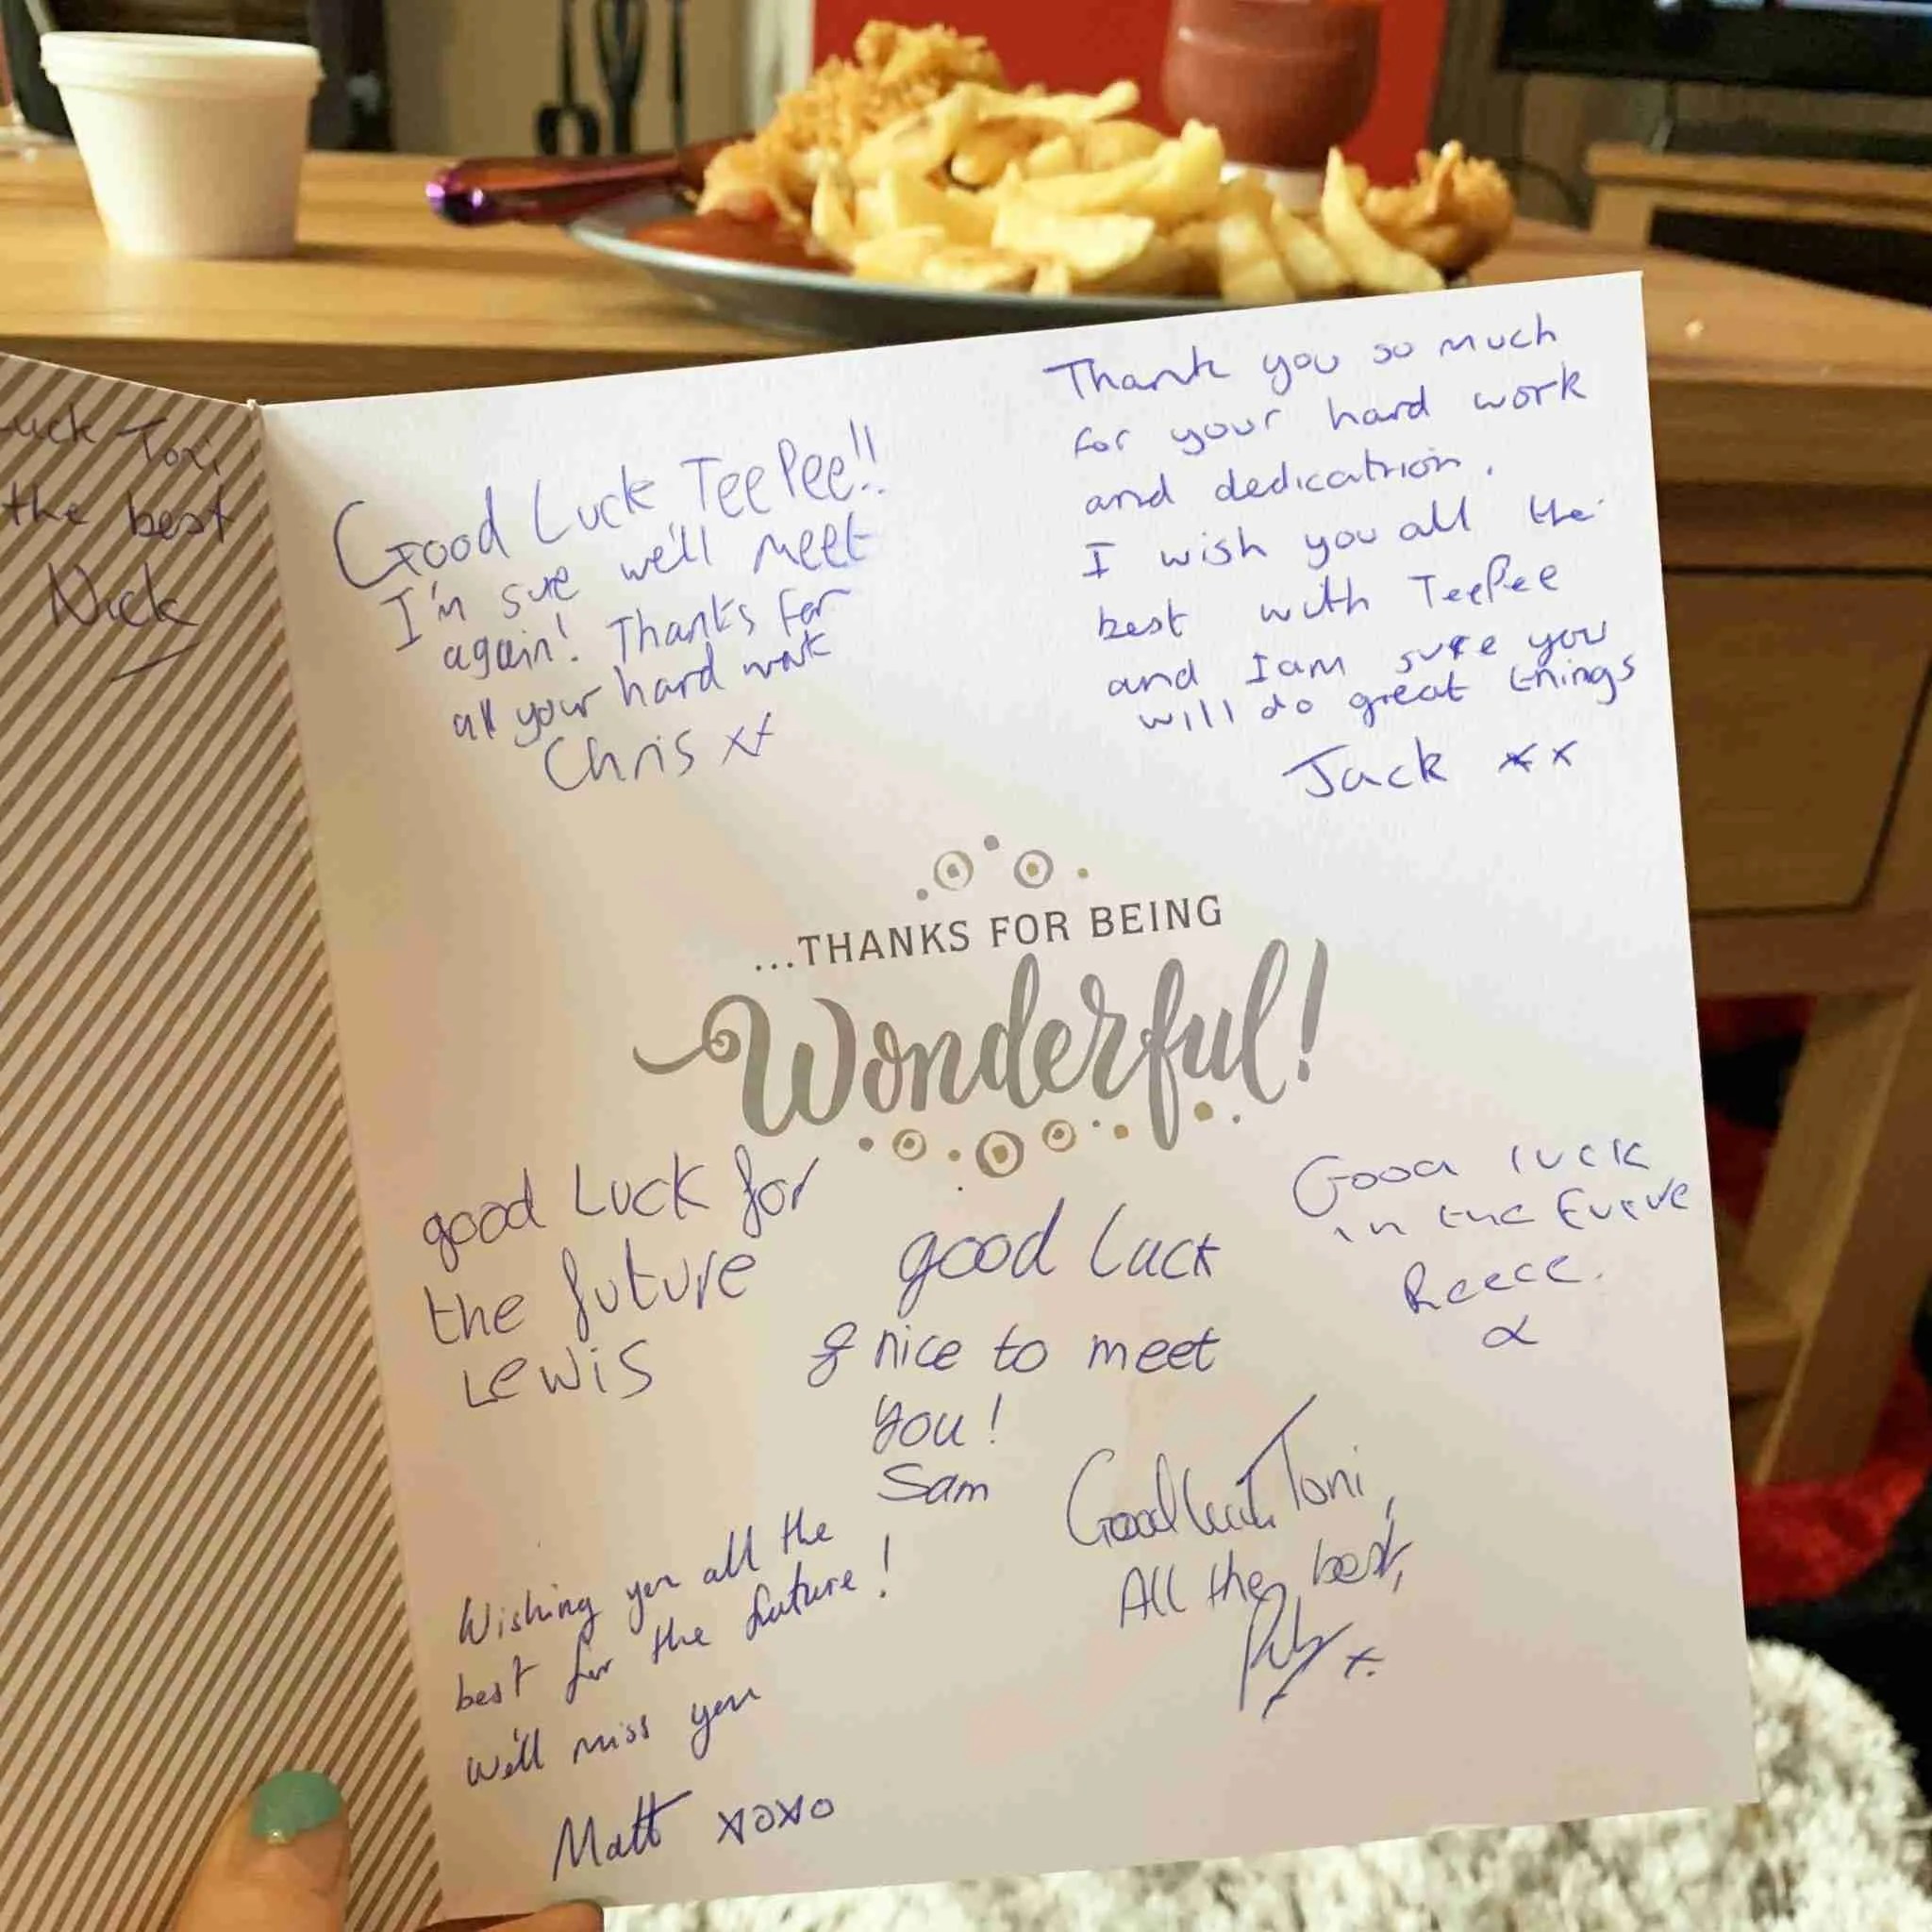 uck Toni
the best
Nick
Good Luck TeePee!!
I'm sure we'll meet
again! Thanks for
all your hard work
Chris xx
Thank you so much
for your hard work
and dedicatrion.
I wish you all the
best with TeePee
and I am sure you
will do great things
Jack xx
...THANKS FOR BEING
Wonderful!
good Luck for
the future
Lewis
good luck
& nice to meet
you!
Sam
Good luck
in the future
Reece.
x
Wishing you all the
best for the future!
We'll miss you
Matt xoxo
Good luck Toni,
All the best,
x.